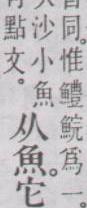 同。惟鱧鯇爲一。
沙小魚从魚。它
點文。